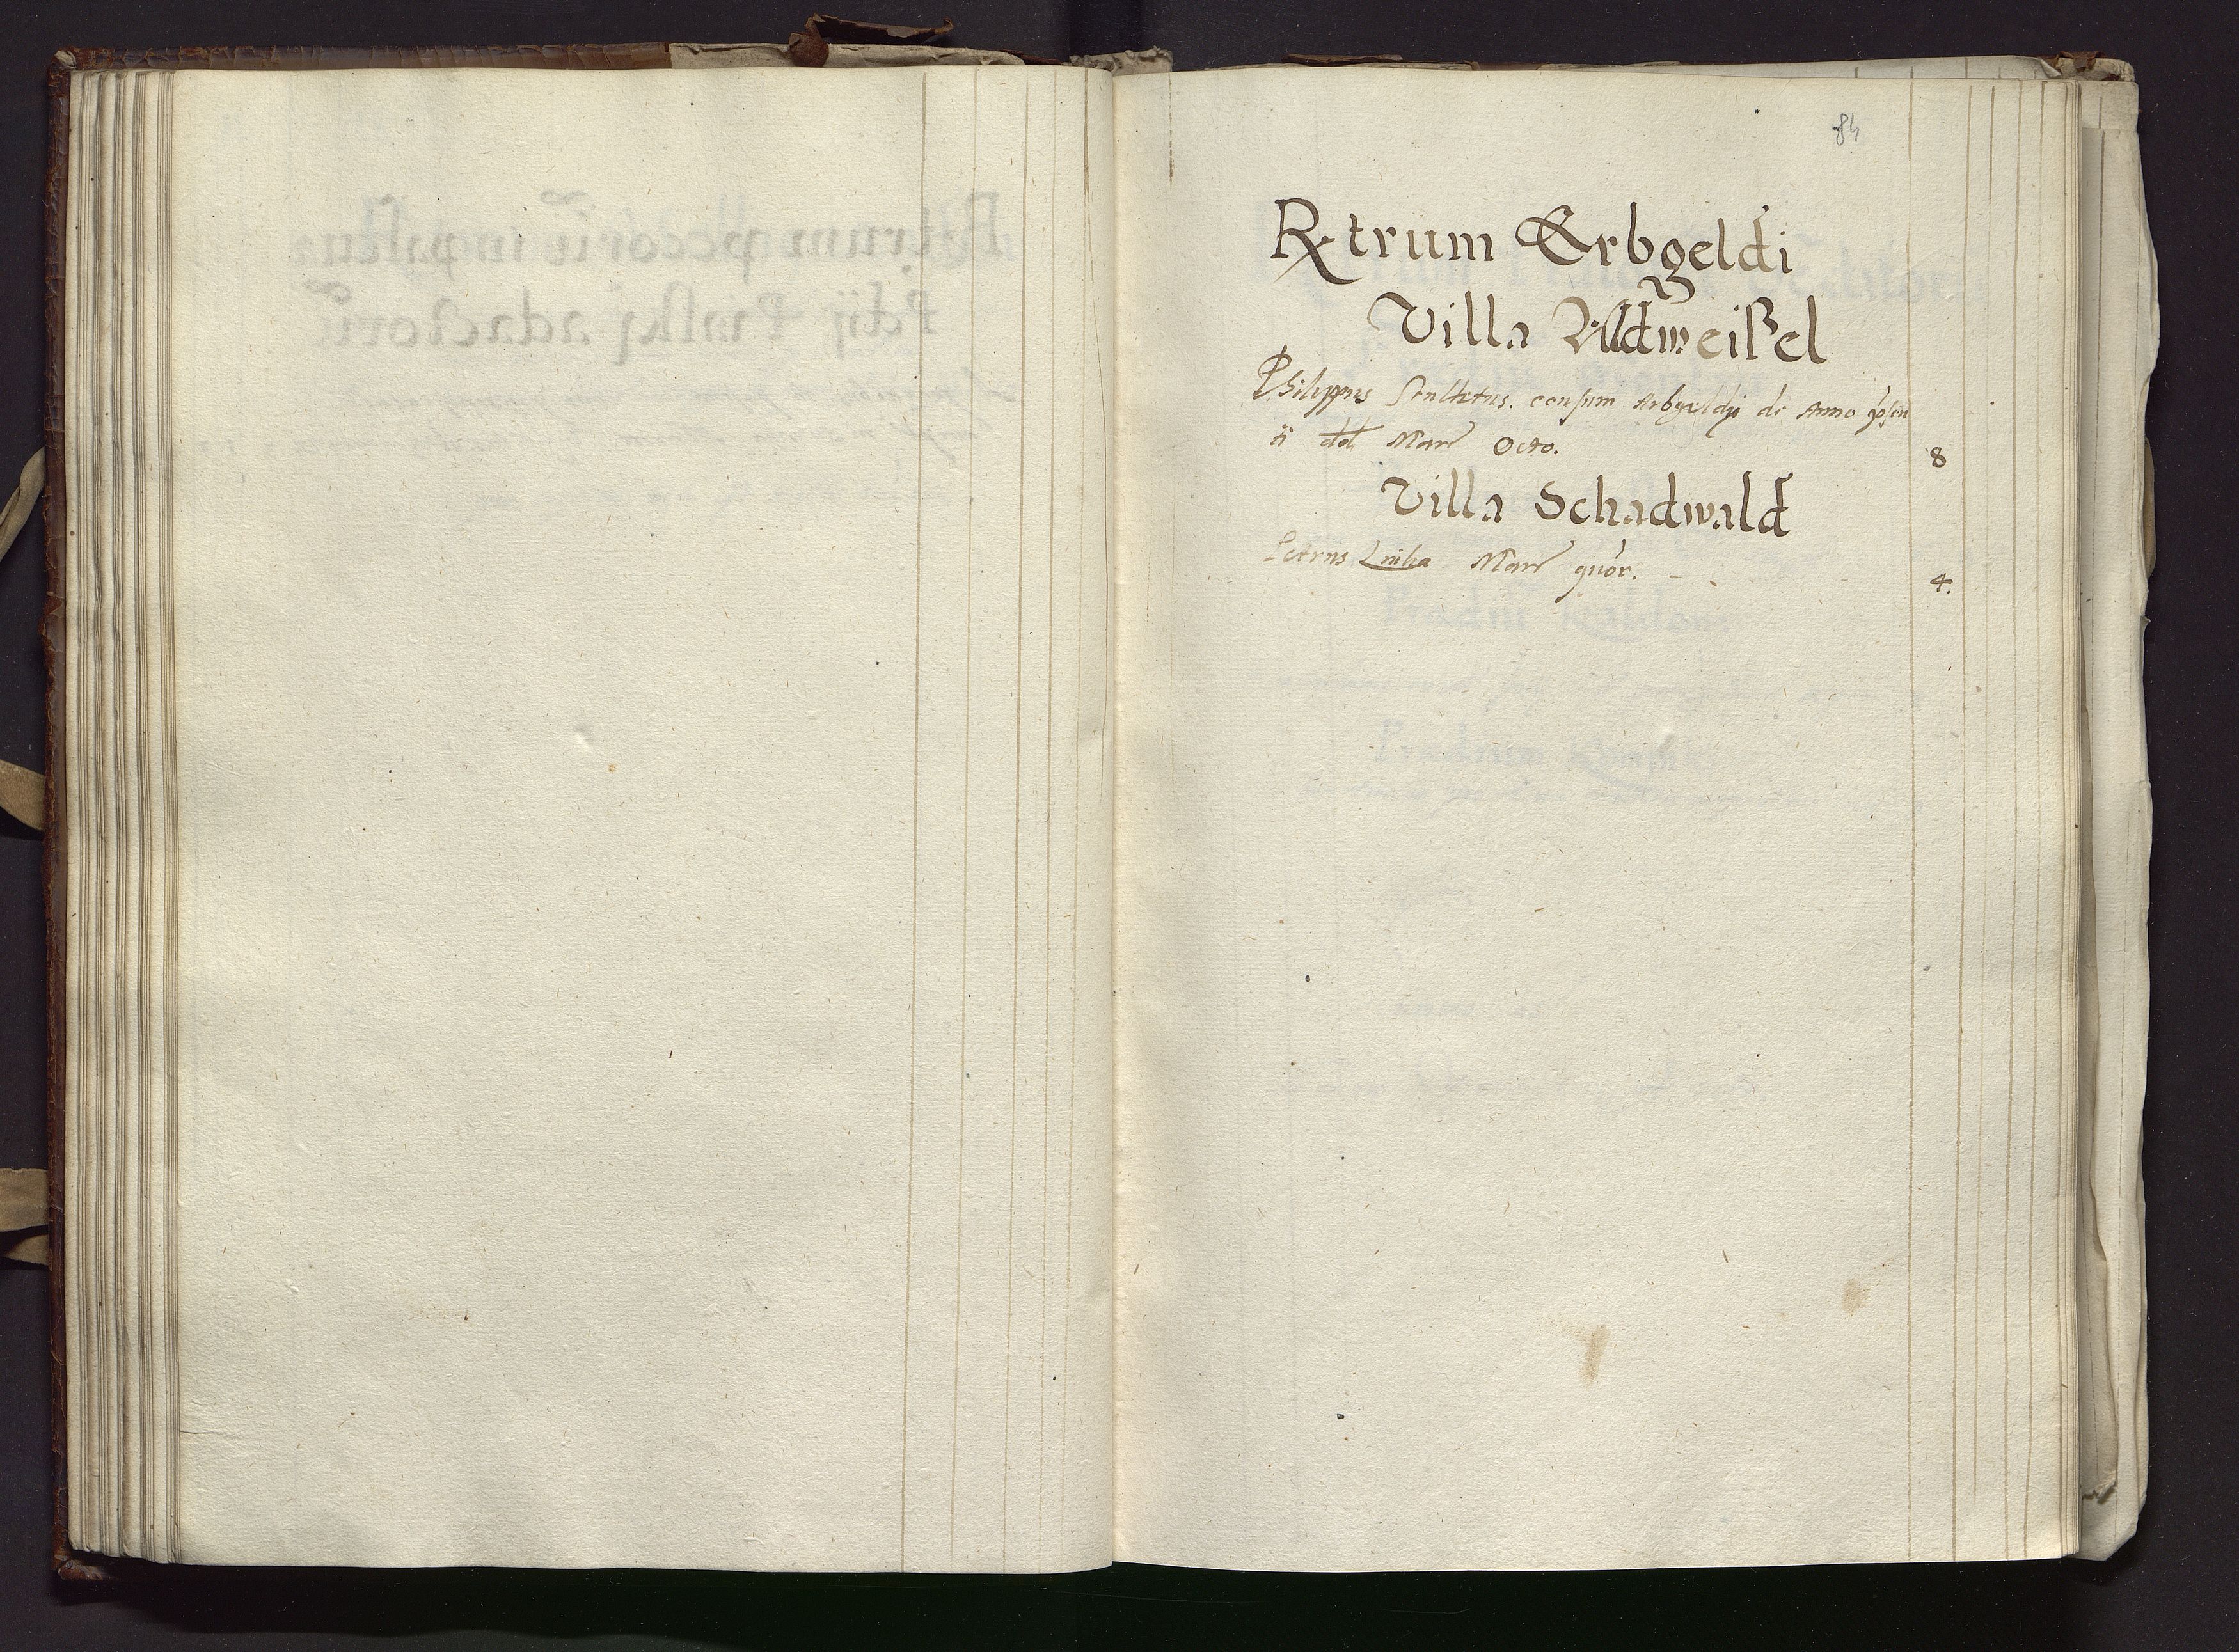 84
Rxtrum Erbgeldi
Villa Aldweißel
Philippus Scultetus. censum Erbgeldji de Anno pñsen
ti ddt Marc Octo. 8
Villa Schadwald
Petrus Marc quõr. 4.